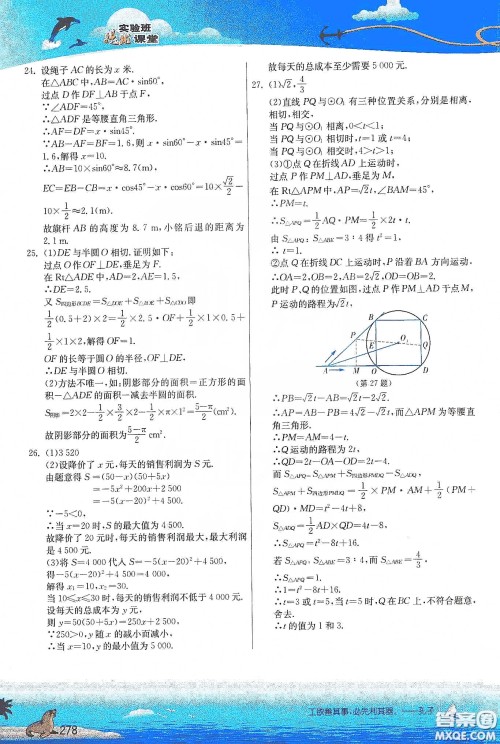 实验班
提优课堂
24. 设绳子 AC 的长为 x 米.
在△ABC 中,AB=AC·sin60°,
过点 D 作 DF⊥AB 于点 F,
∵∠ADF=45°,
∴△ADF 是等腰直角三角形.
∴AF=DF=x·sin45°.
∵AB-AF=BF=1.6,则 x·sin60°-x·sin45°=1.6,解得 x=10,
∴AB=10×sin60°≈8.7(m),
EC=EB-CB=x·cos45°-x·cos60°=10×√2/2-
10×1/2≈2.1(m).
故旗杆 AB 的高度为 8.7 m,小铭后退的距离为
2.1 m.
25. (1)DE 与半圆 O 相切.证明如下:
过点 O 作 OF⊥DE,垂足为 F.
在 Rt△ADE 中,AD=2,AE=1.5,
∴DE=2.5.
又 S四边形BCDE=S△DOE+S△EBO+S△CDO,即
1/2(0.5+2)×2=1/2×2.5·OF+1/2×1×0.5+
1/2×1×2,解得 OF=1.
OF 的长等于圆 O 的半径,OF⊥DE,
∴DE 与半圆 O 相切.
(2)方法不唯一,如:阴影部分的面积=正方形的面
积-△ADE 的面积-减去半圆的面积.
S阴影=2×2-1/2×3/2×2-1/2×π×1²=(5-π)/2(cm²).
故阴影部分的面积为(5-π)/2 cm².
26. (1)3 520
(2)设降价了 x 元,每天的销售利润为 S 元.
由题意得 S=(50-x)(50+5x)
=-5x²+200x+2 500
=-5(x-20)²+4 500.
∵-5<0,
∴当 x=20 时,S 的最大值为 4 500.
故降价了 20 元时,每天的销售利润最大,最大利润
是 4 500 元.
(3)将 S=4 000 代入 S=-5(x-20)²+4 500,
得-5(x-20)²+4 500=4 000.
解得 x₁=10,x₂=30.
当 10≤x≤30 时,每天的销售利润不低于 4 000 元.
设每天的总成本为 y 元,
则 y=50(50+5x)=250x+2 500.
∵250>0,∴y 随 x 的减小而减小,
∴当 x=10 时,y 的最小值为 5 000.
故每天的总成本至少需要 5 000 元.
27. (1)√2,4/3
(2)直线 PQ 与⊙O₁ 有三种位置关系,分别为相离,
相切,相交.
当 PQ 与⊙O₁ 相离时,0<t<1;
当 PQ 与⊙O₁ 相切时,t=1 或 t=4;
当 PQ 与⊙O₁ 相交时,4>t>1.
(3)①点 Q 在折线 AD 上运动时,
过点 P 作 PM⊥AD,垂足为 M,
在 Rt△APM 中,AP=√2t,∠BAM=45°,
∴PM=t.
∴S△APQ=1/2AP·QM=1/2t×2t=t².
由 S△APQ:S△ABE=3:4 得 t²=1,
∴t=1.
②点 Q 在折线 DC 上运动时,P 沿着 BA 方向运动,
∴OA=2,OB=2,AB=2√2,OD=2.
此时 P、Q 的位置如图,过点 P 作 PM⊥AD 于点 M,
P 运动的路程为√2t,
B
C
P
E
Q
A
M
O
D
(第 27 题)
∴PB=√2t-AB=√2t-2√2.
∴AP=AB-PB=4√2-√2t,而△APM 为等腰直
角三角形.
∴PM=AM=4-t.
∵Q 运动的路程为 2t,
∴QD=2t-OA-OD=2t-4.
S△APM+S四边形PMDQ=1/2×PM·AM+1/2(PM+
QD)·MD=t²-4t+8,
S△ADQ=1/2AD·QD=4t-8,
∴S△APQ=t²-8t+16.
若 S△APQ:S△ABE=3:4,而 S△ABE=4/3,
∴1=t²-8t+16.
∴t=3 或 t=5,当 t=5 时,Q 在 BC 上,不符合题意,
舍去.
∴t 的值为 1 和 3.
工欲善其事,必先利其器。——孔子
278
答案圈
MXQE.COM